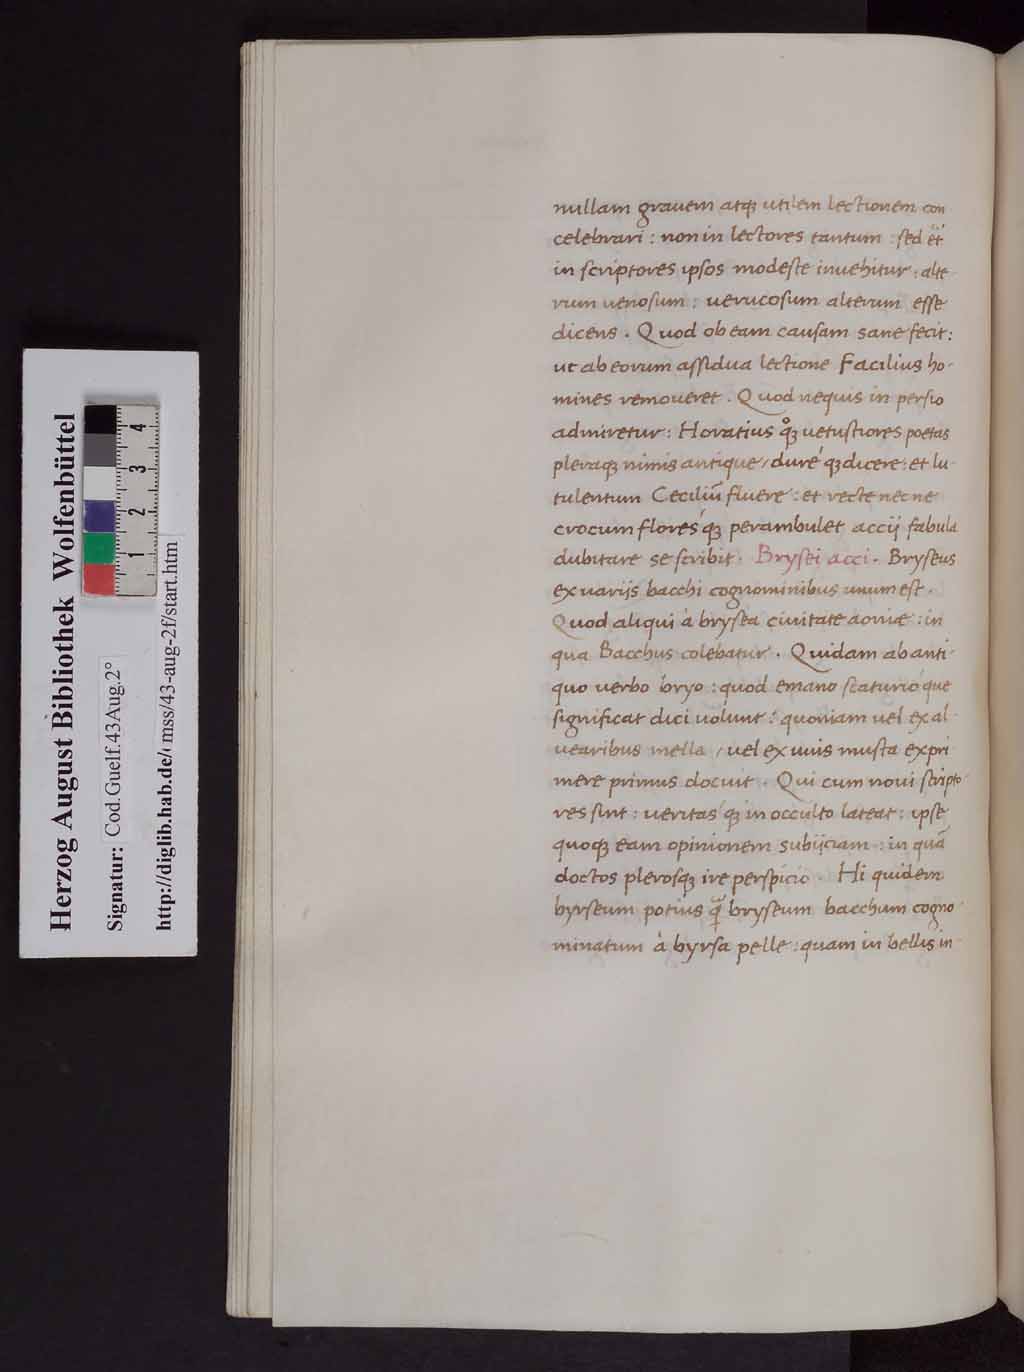 Herzog August Bibliothek Wolfenbüttel
Signatur: Cod.Guelf.43Aug.2°
http://diglib.hab.de/mss/43-aug-2f/start.htm
1 2 3 4
nullam grauem atqꝫ utilem lectionem con
celebrari : non in lectores tantum : sed et
in scriptores ipsos modeste inuehitur : alte
rum uenosum : uerucosum alterum esse
dicens . Quod ob eam causam sane fecit :
ut ab eorum assidua lectione Facilius ho-
mines remoueret . Quod nequis in persio
admiretur : Horatius qꝫ uetustiores poetas
pleraqꝫ nimis antique / dure qꝫ dicere : et lu-
tulentum Ceciliū fluere : et recte nec ne
crocum flores qꝫ perambulet accij fabula
dubitare se scribit . Brysei acci . Bryseus
ex uarijs bacchi cognominibus unum est .
Quod aliqui à brysea ciuitate aoniæ : in
qua Bacchus colebatur . Quidam ab anti-
quo uerbo bryo : quod emano scaturio que
significat dici uolunt : quoniam uel ex al-
uearibus mella / uel ex uuis musta expri
mere primus docuit . Qui cum noui scripto-
res sint : ueritas qꝫ in occulto lateat : ipse
quoqꝫ eam opinionem subijciam : in quā
doctos plerosqꝫ ire perspicio . Hi quidem
byrseum potius q̄ bryseum bacchum cogno-
minatum à byrsa pelle : quam in bellis in-